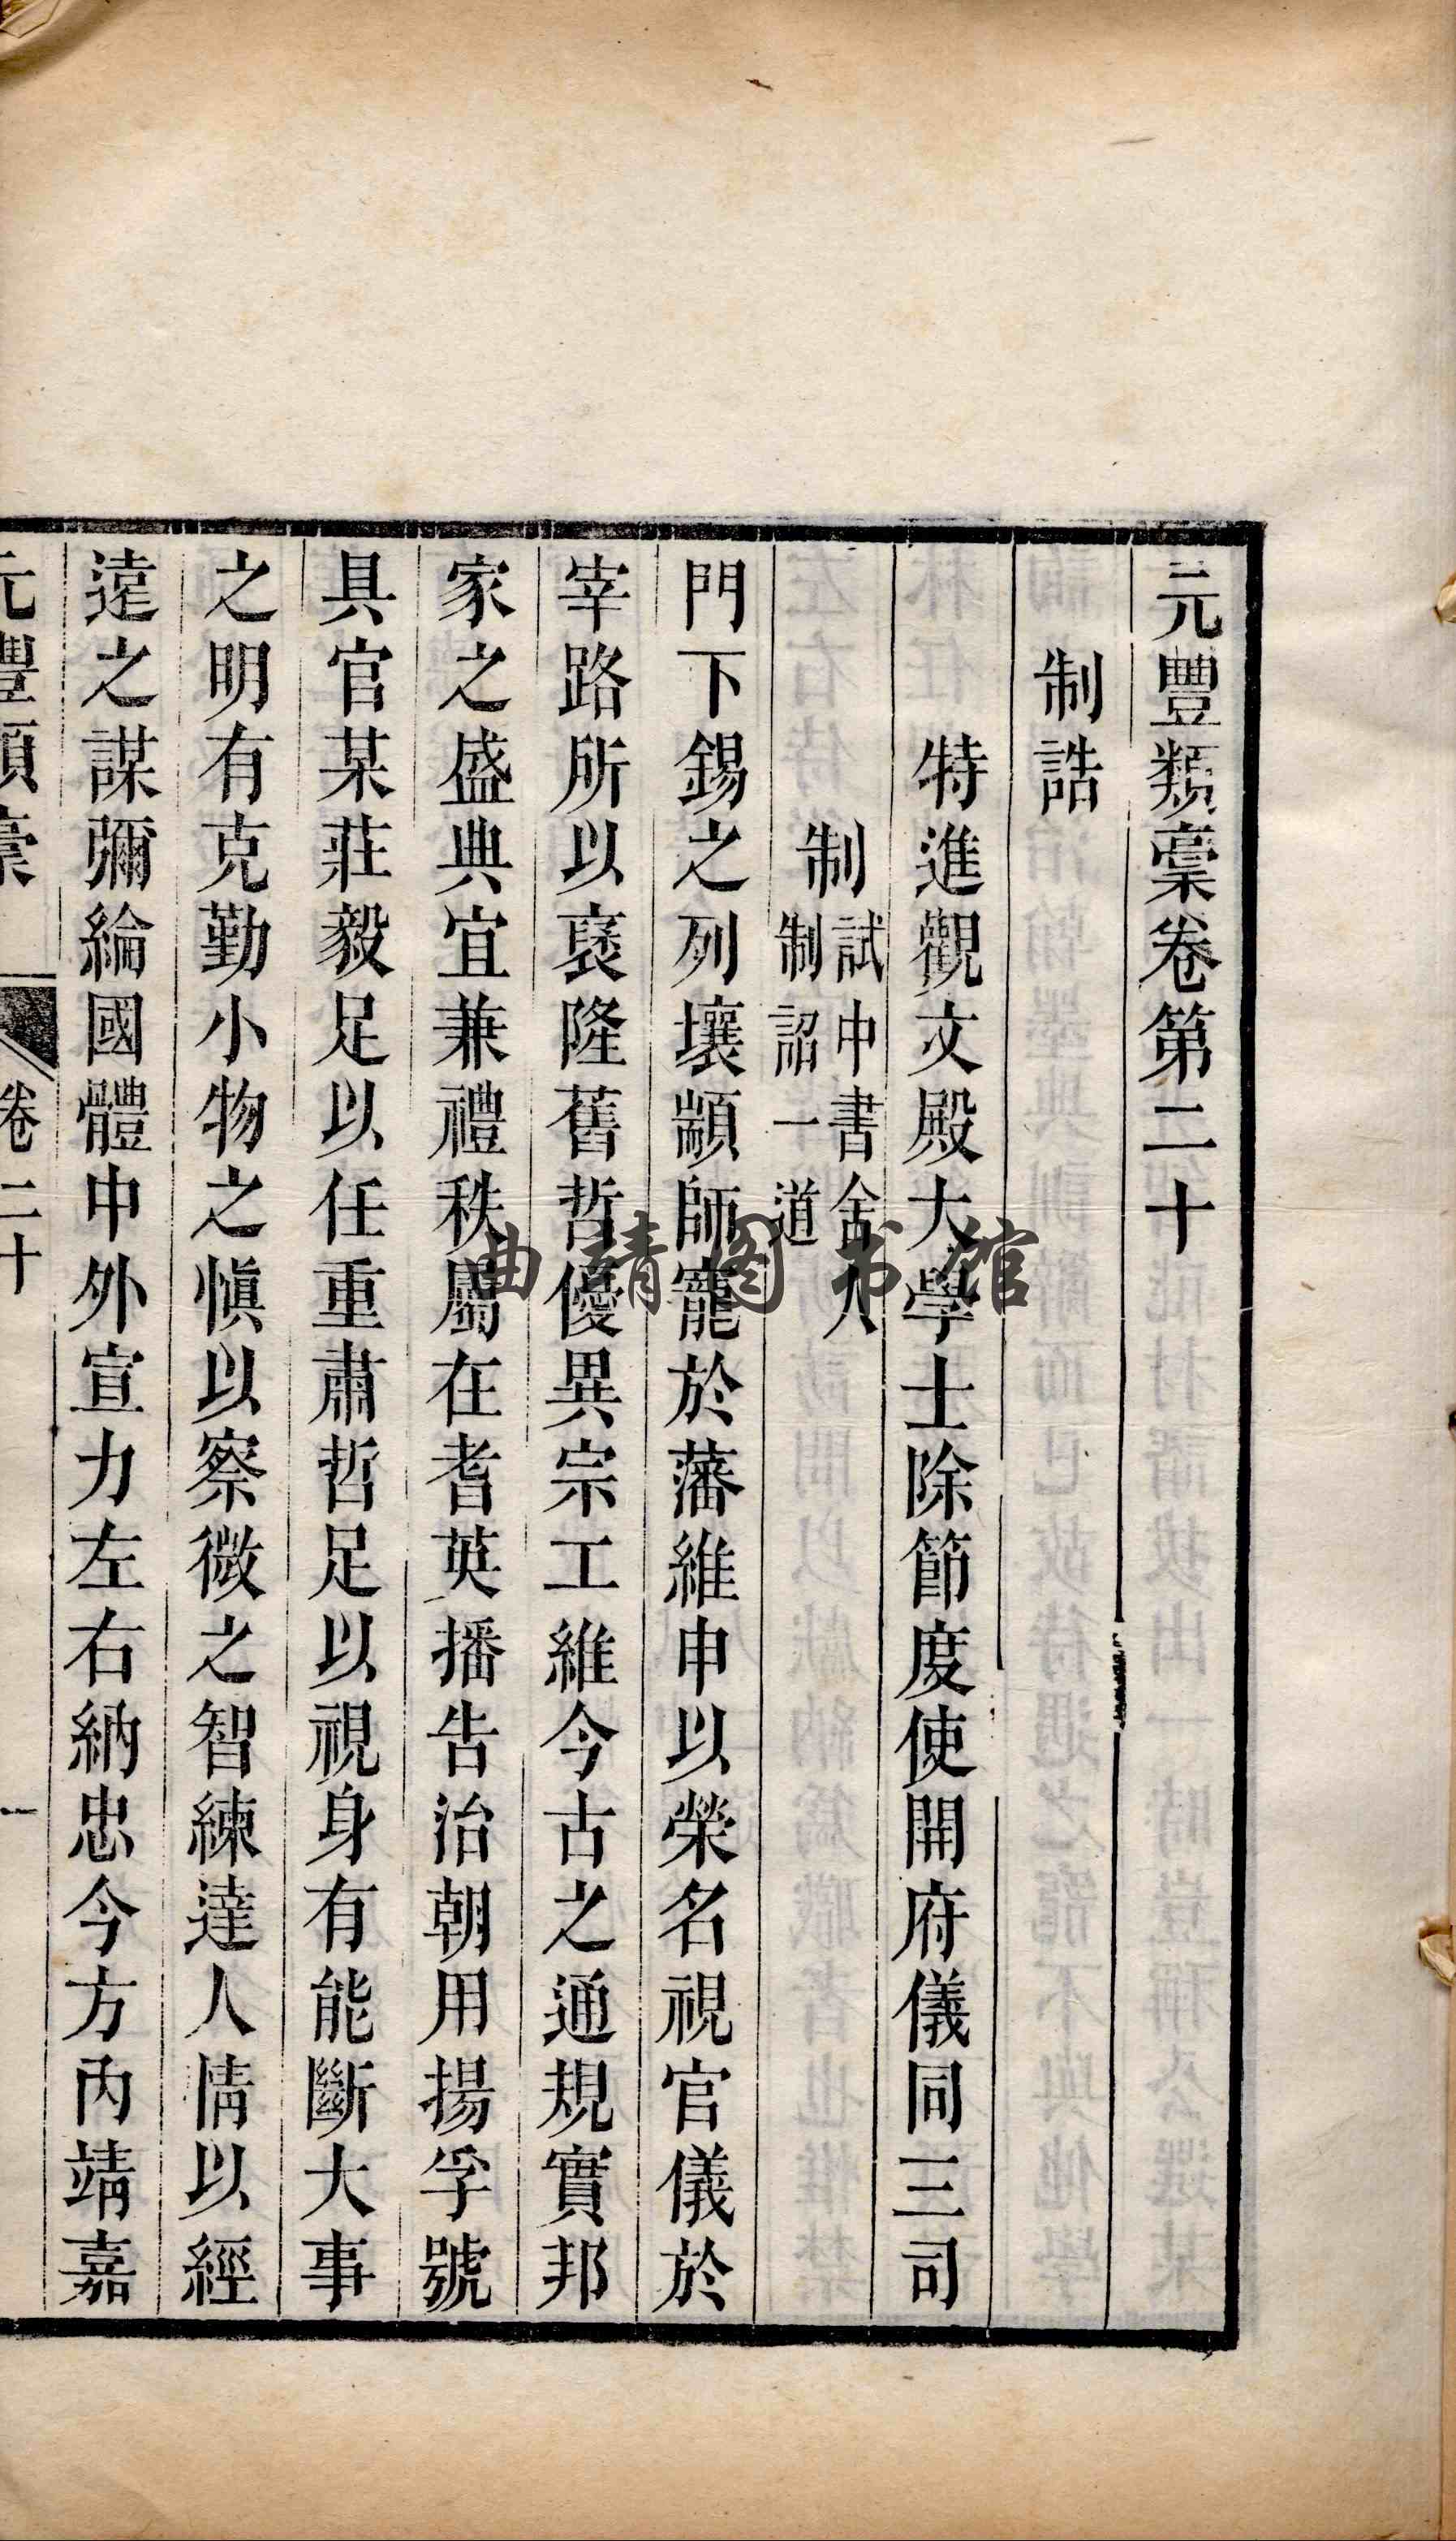 元豐類稾卷第二十
制誥
特進觀文殿大學士除節度使開府儀同三司
制試中書舍人制詔一道
門下錫之列壤顓師寵於藩維申以榮名視官儀於
宰路所以襃隆舊哲優異宗工維今古之通規實邦
家之盛典宜兼禮秩屬在耆英播告治朝用揚孚號
具官某莊毅足以任重肅哲足以視身有能斷大事
之明有克勤小物之愼以察微之智練達人情以經
遠之謀彌綸國體中外宣力左右納忠今方內靖嘉
元豐類稾 卷二十 一
曲靖图书馆